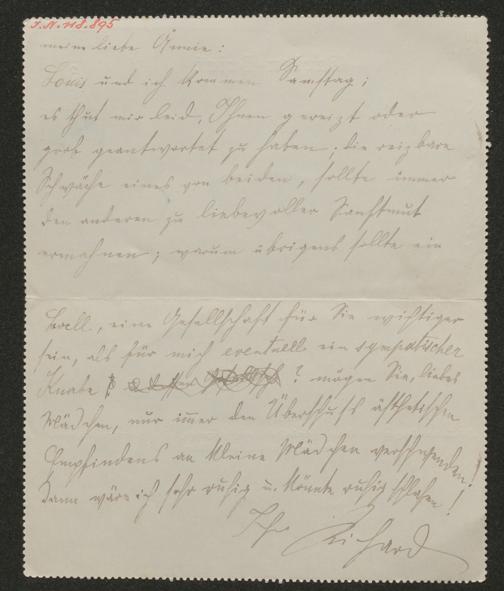 J.N. 118.895
meine liebe Ännie:
Louis und ich kommen Samstag;
es thut mir leid, Ihnen gereizt oder
grob geantwortet zu haben; die reizbare
Schwäche eines von beiden, sollte immer
den anderen zu liebevoller Sanftmut
ermahnen; warum übrigens sollte ein
Ball, eine Gesellschaft für Sie wichtiger
sein, als für mich eventuell ein sympatischer
Knabe ? mögen Sie, liebes
Mädchen, nur immer den Überschuß ästhetischen
Empfindens an kleine Mädchen verschwenden!
Dann wäre ich sehr ruhig u. könnte ruhig schlafen!
Ihr Richard